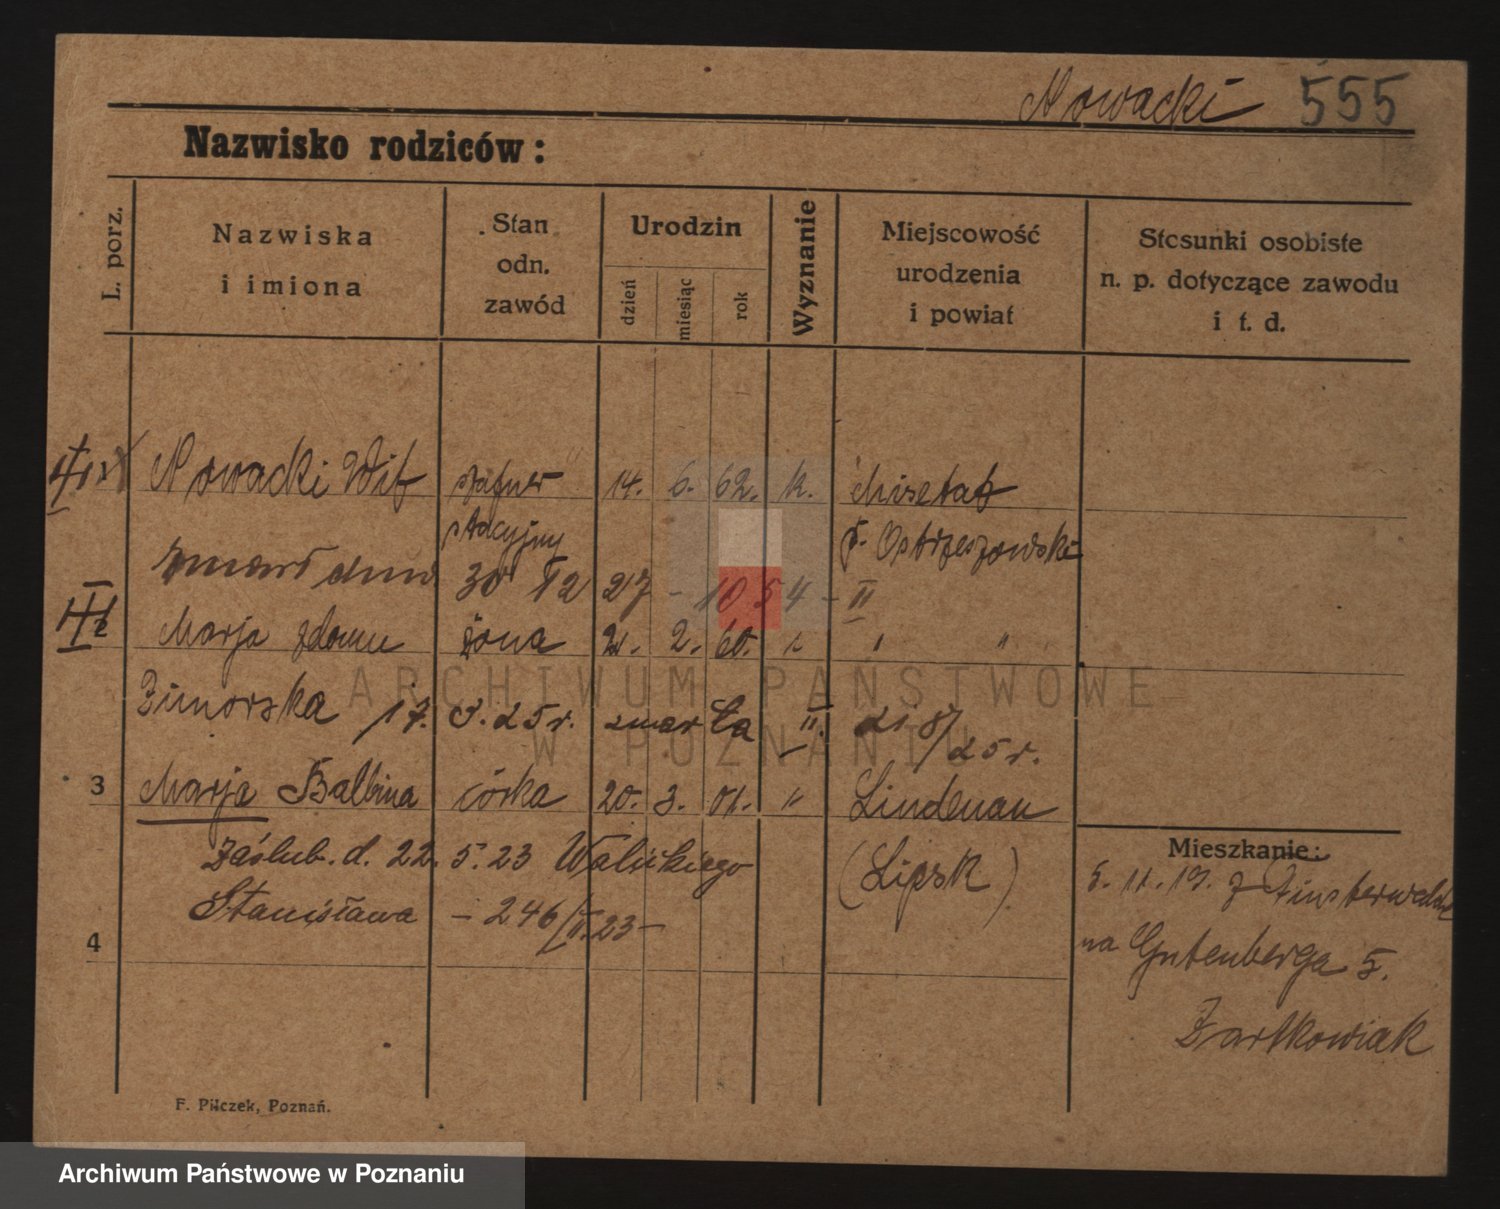 Nowacki 555
Nazwisko rodziców:
L. porz.
Nazwiska
i imiona
Stan
odn.
zawód
Urodzin
dzień
miesiąc
rok
Wyznanie
Miejscowość
urodzenia
i powiat
Stosunki osobiste
n. p. dotyczące zawodu
i t. d.
Nowacki Wit 14. 6. 62. k.
stacyjny p. Ostrzeszowski
zmarł dnia 27 - 10 54 - II
Marja zdomu żona 2. 60. " "
17. 5. 25 r. zmarła II. 21 8/25 r.
3 Marja Balbina córka 20. 3. 01. " Lindenau
Zaślub. d. 22. 5. 23 Walickiego (Lipsk)
Stanisława - 246/II.23 -
4
Mieszkanie:
5. 11. 19. z Finsterwalde
na Gutenberga 5.
Bartkowiak
F. Pilczek, Poznań.
ARCHIWUM PAŃSTWOWE
W POZNANIU
Archiwum Państwowe w Poznaniu